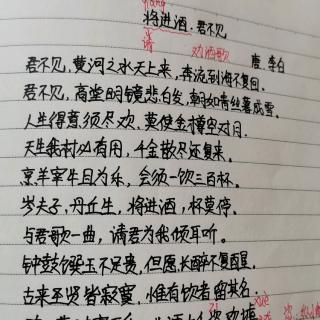 qiāng
将进酒·君不见
请 劝酒歌
唐 李白
君不见,黄河之水天上来,奔流到海不复回。
君不见,高堂明镜悲白发,朝如青丝暮成雪。
人生得意须尽欢,莫使金樽空对月。
天生我材必有用,千金散尽还复来。
烹羊宰牛且为乐,会须一饮三百杯。
岑夫子,丹丘生,将进酒,杯莫停。
与君歌一曲,请君为我倾耳听。
钟鼓馔玉不足贵,但愿长醉不复醒。
古来圣贤皆寂寞,惟有饮者留其名。